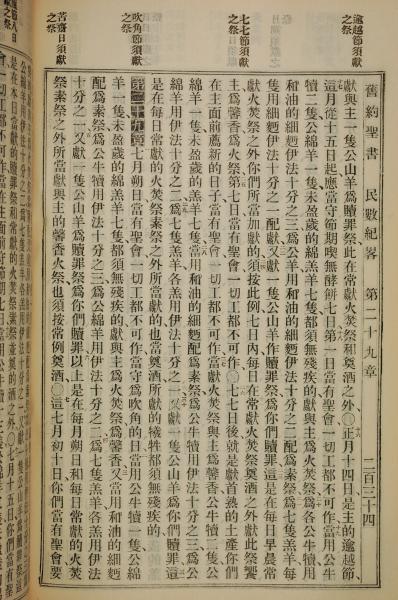 舊約聖書　民數紀畧　第二十九章　二百三十四
逾越節須獻之祭
七七節須獻之祭
吹角節須獻之祭
苦齋日須獻之祭
獻與主一隻公山羊爲贖罪祭此在常獻火焚祭和奠酒之外○正月十四日是主的逾越節
這月從十五日起應當守節期喫無酵餅七日第一日當有聖會一切工都不可作當用公牛
犢二隻公綿羊一隻未盈歲的羔羊七隻都須無殘疾的獻與主爲火焚祭爲各公牛犢用
和油的細麪伊法十分之三爲公羊用和油的細麪伊法十分之二配爲素祭爲七隻羔羊每
隻用細麪伊法十分之一配獻又獻一隻公山羊作贖罪祭爲你們贖罪這是在每日早晨常
獻火焚祭之外你們所當加獻的須按此例七日內每日在常獻火焚祭奠酒之外獻此祭饗
主爲馨香火祭第七日當有聖會一切工都不可作○七七日後就是獻首熟的土產你們
在主面前薦新的日子當有聖會一切工都不可作當獻火焚祭與主爲馨香公牛犢二隻公
綿羊一隻未盈歲的羔羊七隻當用和油的細麪配爲素祭爲公牛犢用伊法十分之三爲公
綿羊用伊法十分之二爲七隻羔羊各羔用伊法十分之一又獻一隻公山羊爲你們贖罪這
是在每日常獻火焚祭素祭之外所當獻的也當奠酒所獻的犧牲都須無殘疾的
第二十九章七月朔日當有聖會一切工都不可作當守爲吹角的日當用公牛犢一隻公綿
羊一隻未盈歲的羔羊七隻都須無殘疾的獻與主爲火焚祭爲馨香又當用和油的細麪
配爲素祭爲公牛犢用伊法十分之三爲公綿羊用伊法十分之二爲七隻羔羊各羔用伊法
十分之一又獻一隻公山羊爲贖罪祭爲你們贖罪以上是在每月朔日和每日常獻的火焚
祭素祭之外所當獻與主的馨香火祭也須按常例奠酒○這七月初十日你們當有聖會要